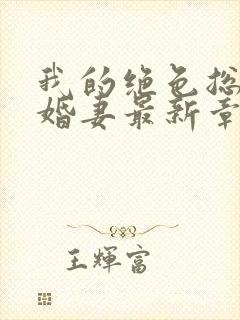 我的绝色总
婚妻最新章
王輝富